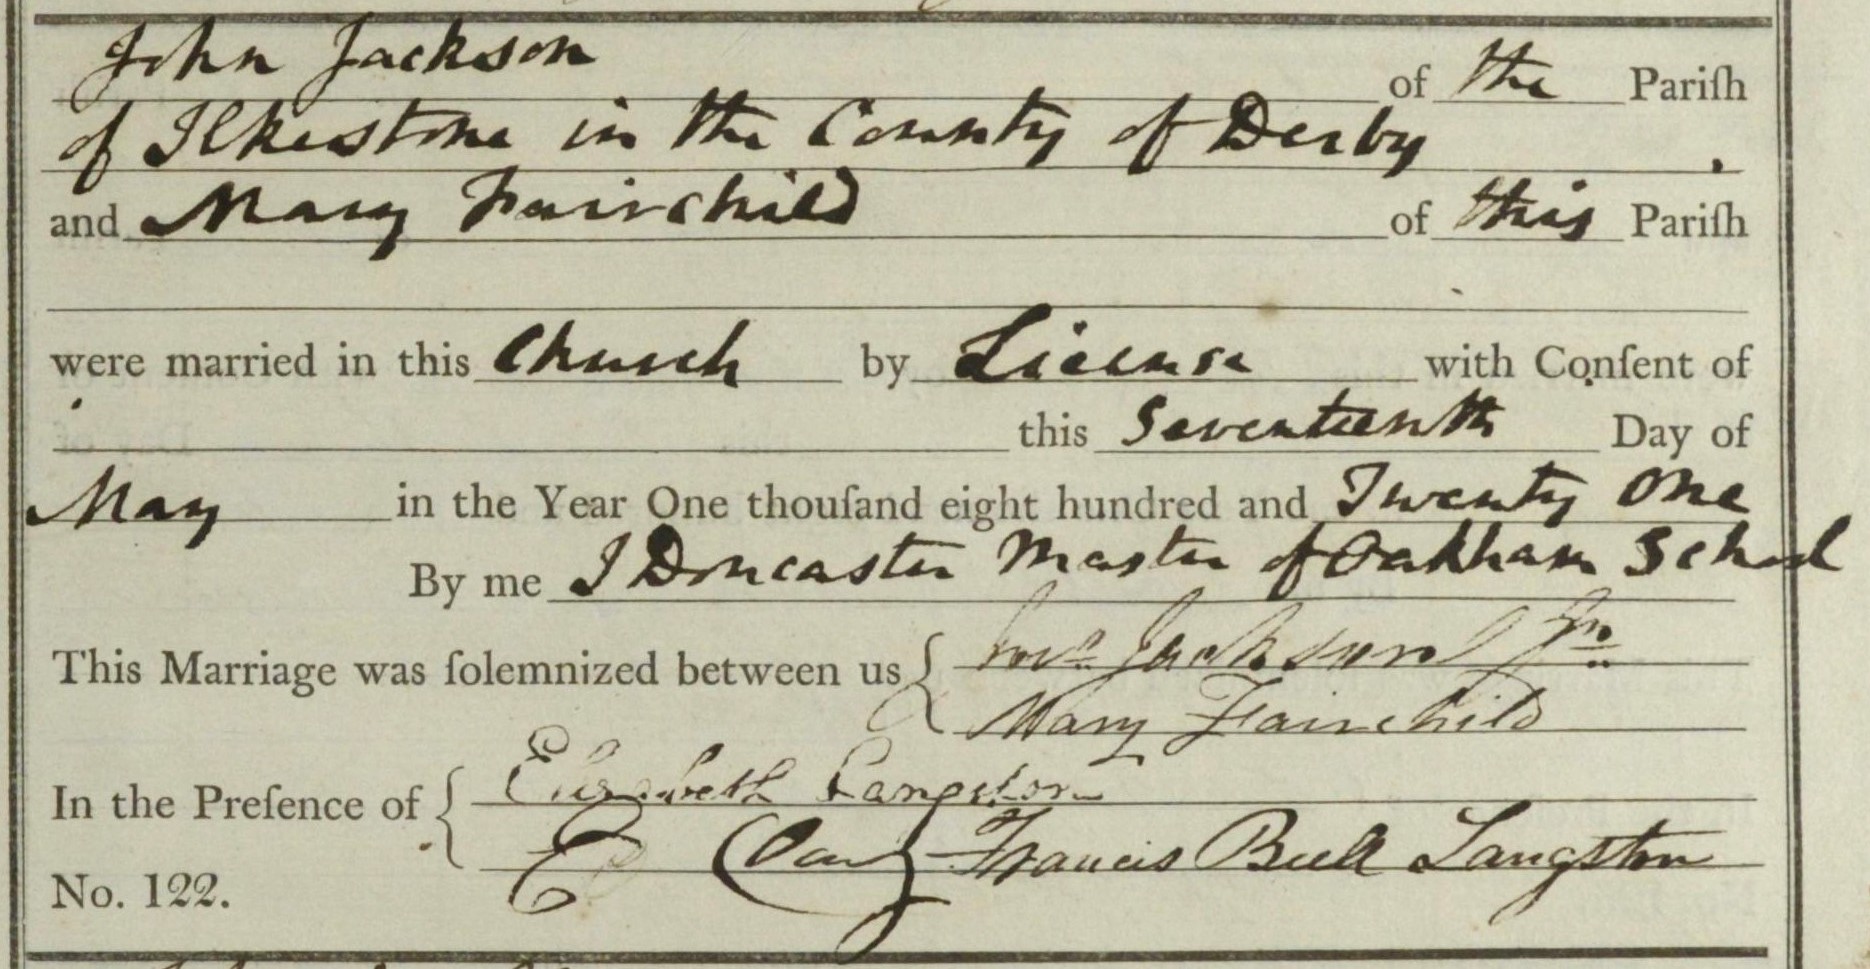 John Jackson of the Pariſh
of Ilkestone in the County of Derby .
and Mary Fairchild of this Pariſh
were married in this Church by License with Conſent of
this Seventeenth Day of
May in the Year One thouſand eight hundred and Twenty One
By me J Doncaster Master of Oakham School
This Marriage was ſolemnized between us { Jno. Jackson Jnr
Mary Fairchild
In the Preſence of { Elizabeth Langston
Francis Bull Langston
No. 122.